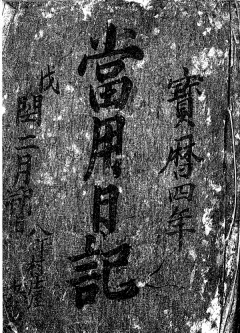 寶暦四年
當用日記
戌
閏二月